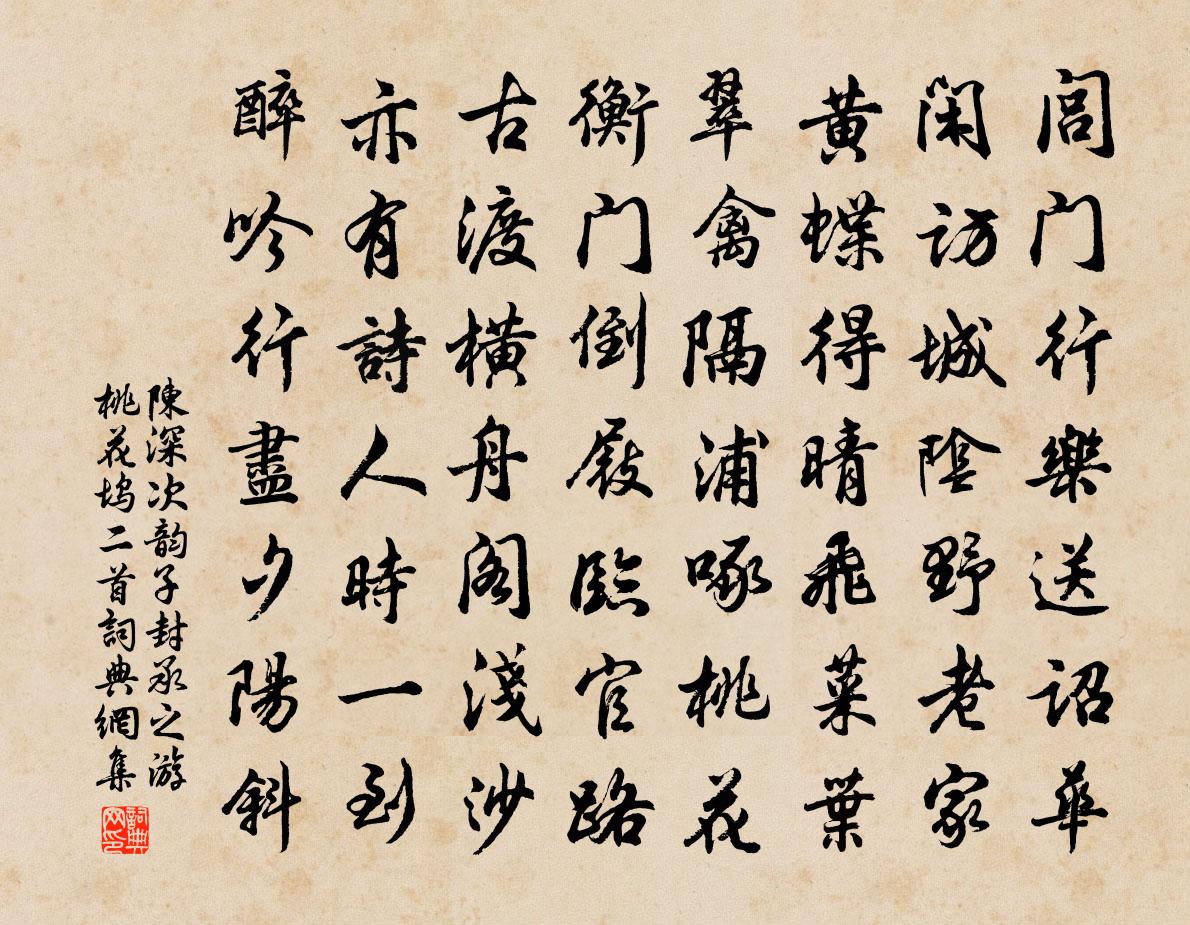 閶门行樂送詔華
閑訪城陰野老家
黄蝶得晴飛菜葉
翠禽隔浦啄桃花
衡门倒屐臨官路
古渡橫舟閣淺沙
亦有詩人時一到
醉吟行盡夕陽斜
陳深次韵子封承之游
桃花坞二首詞典網集
詞典
网印